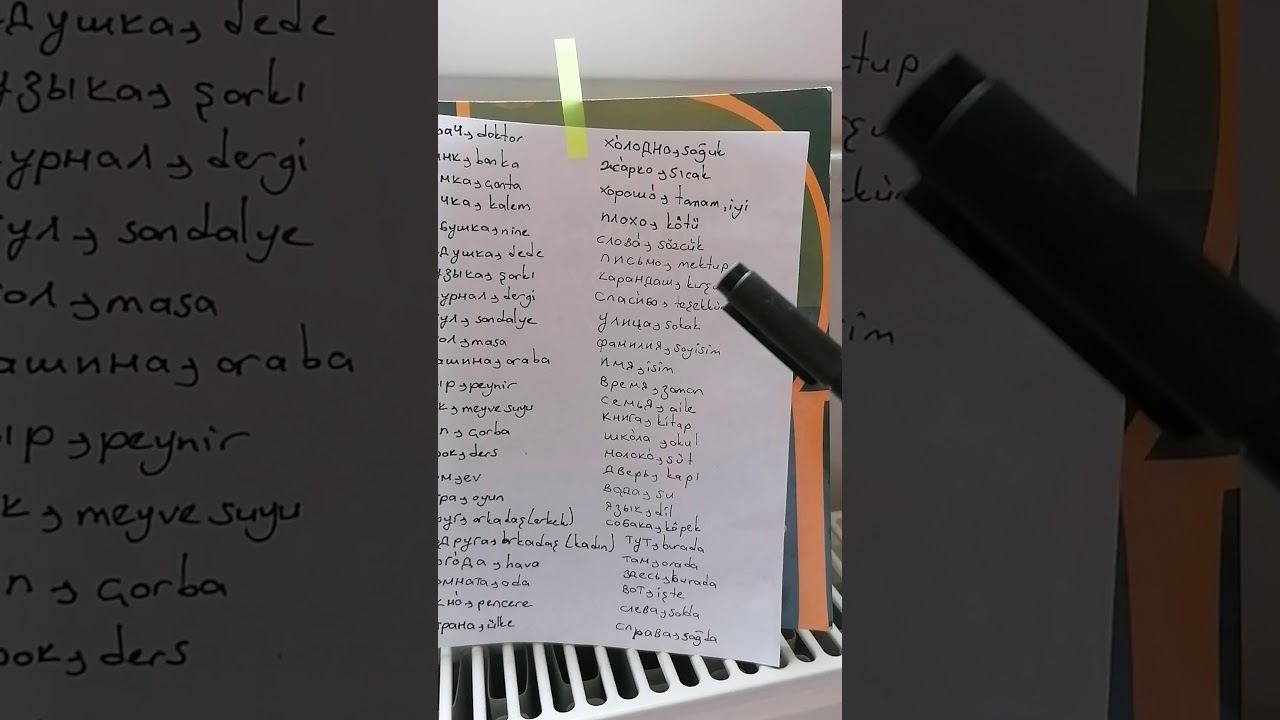 рач → doktor
анк → banka
мка → çanta
чка → kalem
бушка → nine
душка → dede
узыка → şarkı
урнал → dergi
тул → sandalye
ол → masa
ашина → araba
ыр → peynir
к → meyve suyu
п → çorba
рок → ders
ом → ev
гра → oyun
руг → arkadaş (erkek)
одруга → arkadaş (kadın)
огóда → hava
омната → oda
кнó → pencere
трана → ülke
хóлодно → soğuk
жáрко → sıcak
хорошó → tamam, iyi
плохо → kötü
словó → sözcük
письмо → mektup
карандаш → kurşu
спасибо → teşekkür
улица → sokak
фамилия → soyisim
имя → isim
время → zaman
семья → aile
книга → kitap
шкóла → okul
молокó → süt
дверь → kapı
вода → su
язык → dil
собака → köpek
тут → burada
там → orada
здесь → burada
вот → işte
слева → solda
справа → sağda